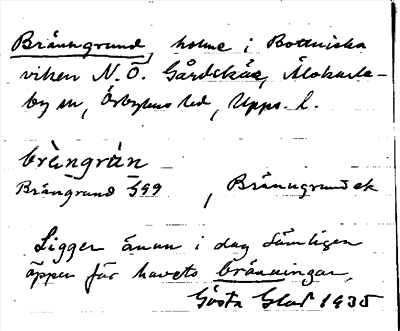 Bränngrund, holme i Bottniska
viken N.O. Gårdskär, Älvkarle-
by sn, Örbyhus hd, Upps. l.
brängrùn
Brängrund G99, Bränngrund ek
Ligger ännu i dag sämligen
öppen för havets bränningar.
Gösta Glad 1935